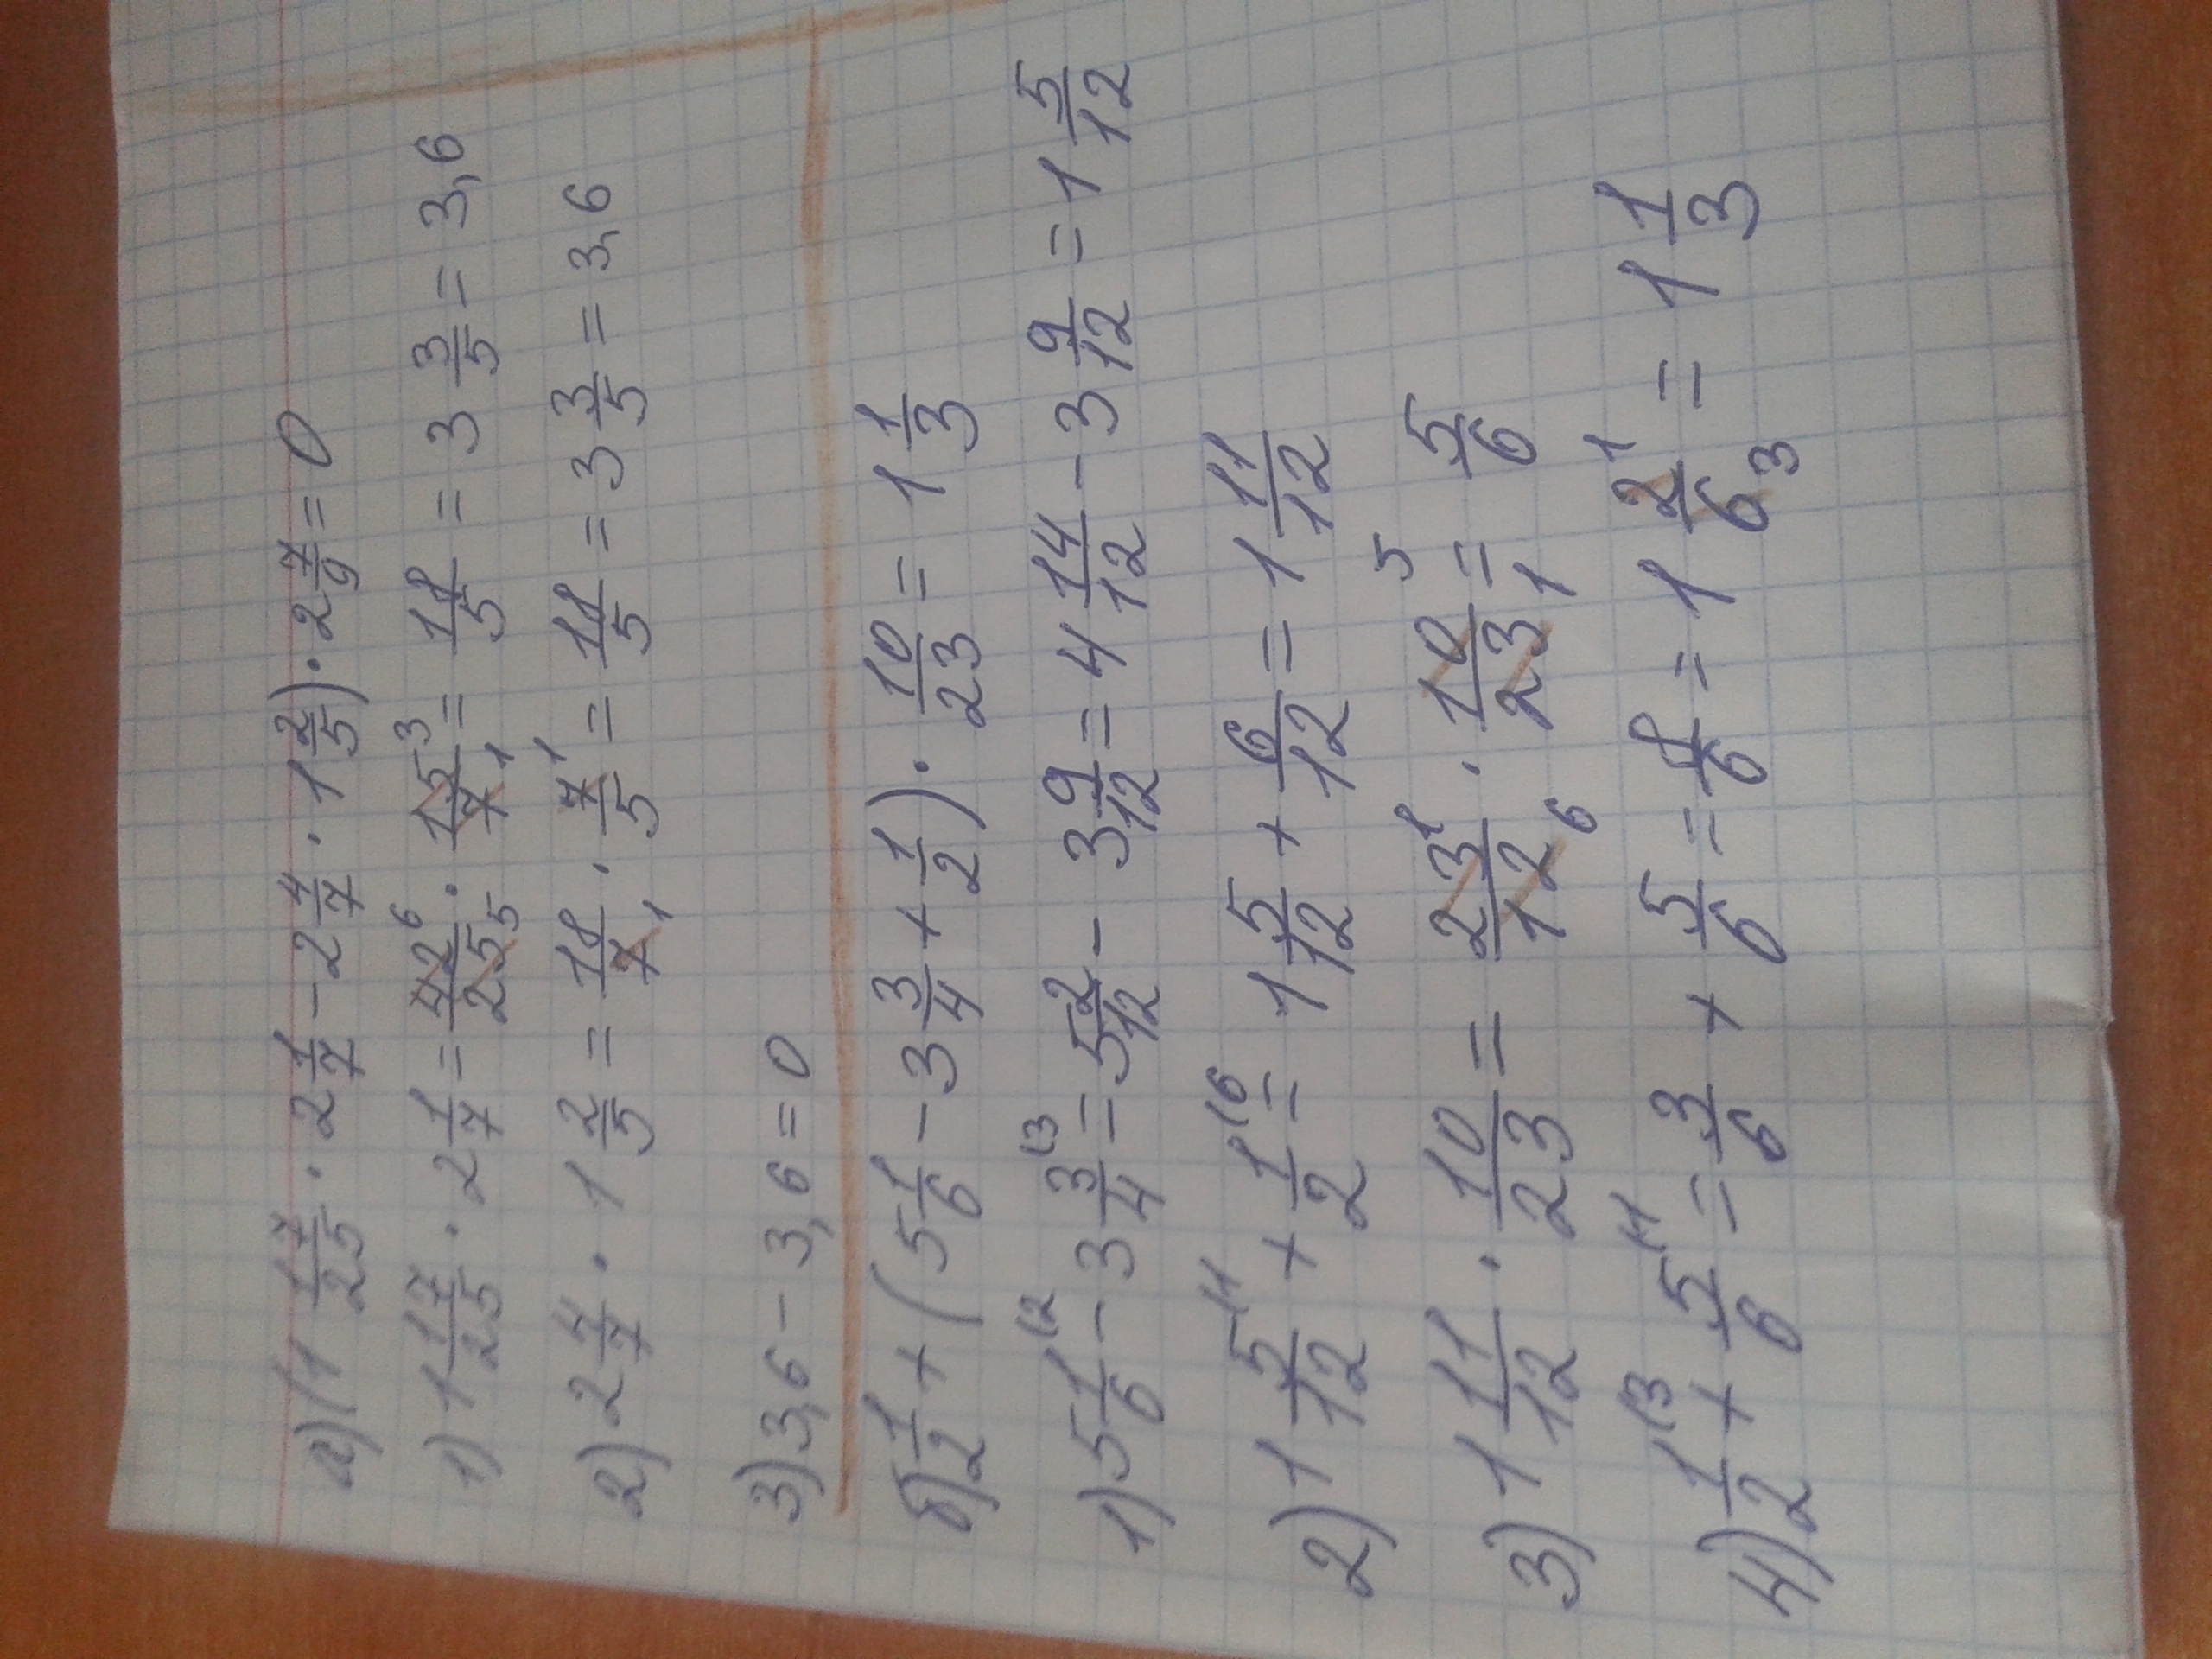 а) (1 17/25 · 2 1/7 - 2 4/7 · 1 2/5) · 2 7/9 = 0
1) 1 17/25 · 2 1/7 = 42⁶/25₅ · 15³/7₁ = 18/5 = 3 3/5 = 3,6
2) 2 4/7 · 1 2/5 = 18/7₁ · 7¹/5 = 18/5 = 3 3/5 = 3,6
3) 3,6 - 3,6 = 0
б) 1/2 + (5 1/6 - 3 3/4 + 1/2) · 10/23 = 1 1/3
1) 5 1/6⁽² - 3 3/4⁽³ = 5 2/12 - 3 9/12 = 4 14/12 - 3 9/12 = 1 5/12
2) 1 5/12⁽¹ + 1/2⁽⁶ = 1 5/12 + 6/12 = 1 11/12
3) 1 11/12 · 10/23 = 23¹/12₆ · 10⁵/23₁ = 5/6
4) 1/2⁽³ + 5/6⁽¹ = 3/6 + 5/6 = 8/6 = 1 2¹/6₃ = 1 1/3